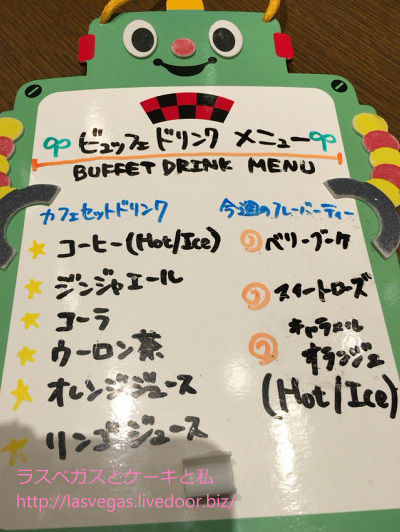 ビュッフェドリンク メニュー
BUFFET DRINK MENU
カフェセットドリンク
コーヒー(Hot/Ice)
ジンジャエール
コーラ
ウーロン茶
オレンジジュース
リンゴジュース
今週のフレーバーティー
ベリーブーケ
スイートローズ
キャラメル
オランジェ
(Hot/Ice)
ラスベガスとケーキと私
http://lasvegas.livedoor.biz/